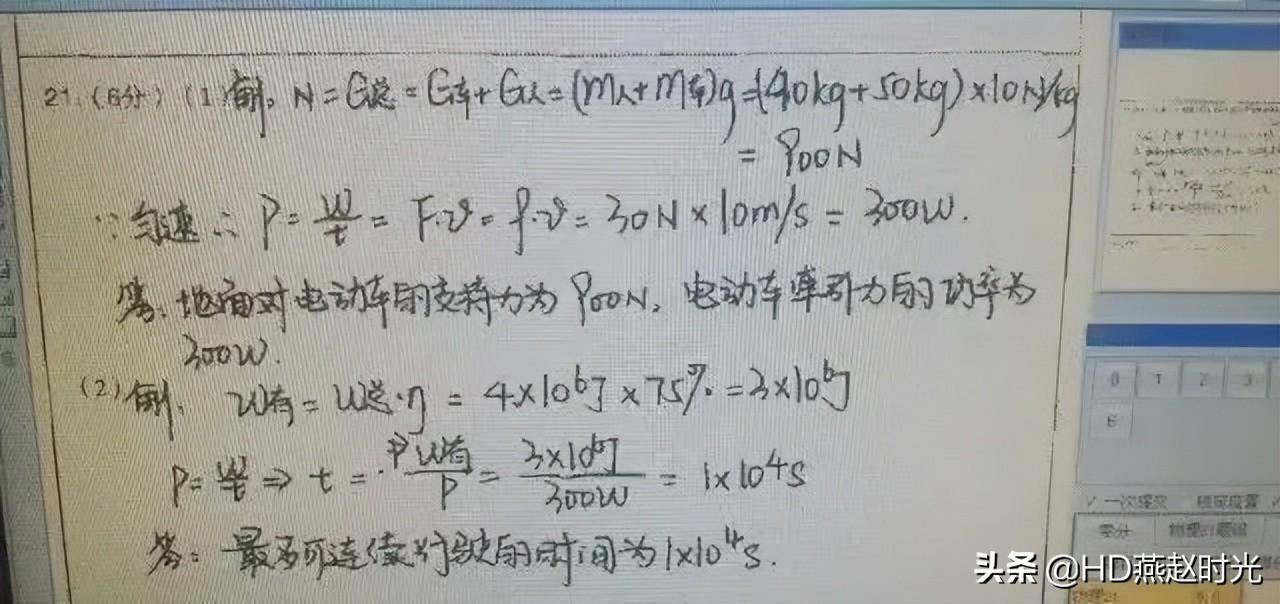 21.(6分)(1)解. N=G总=G车+G人=(m人+m车)g=(40kg+50kg)×10N/kg
=900N
∵匀速∴P=W/t=F·v=f·v=30N×10m/s=300W.
答:地面对电动车的支持力为900N,电动车牵引力的功率为
300W.
(2)解. W有=W总·η=4×10⁶J×75%=3×10⁶J
P=W/t⇒t=W有/P=3×10⁶J/300W=1×10⁴s
答:最多可连续行驶的时间为1×10⁴s.
0 1 2 3
6
一次提交
零分
头条 @HD燕赵时光